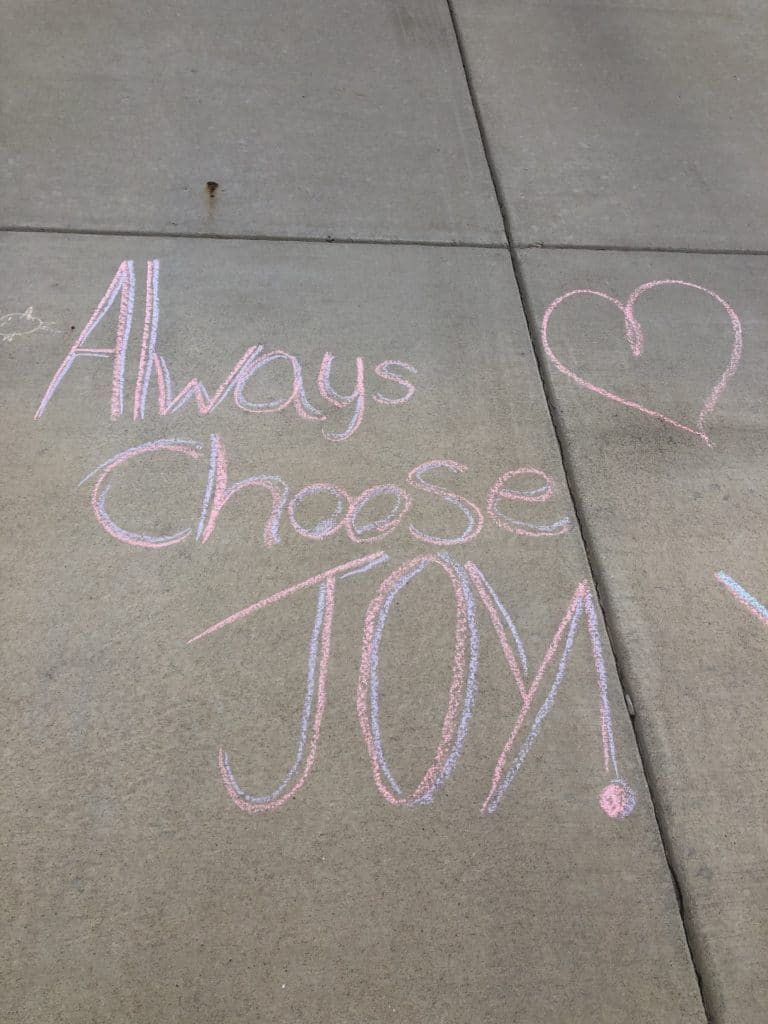 Always
Choose
JOY!